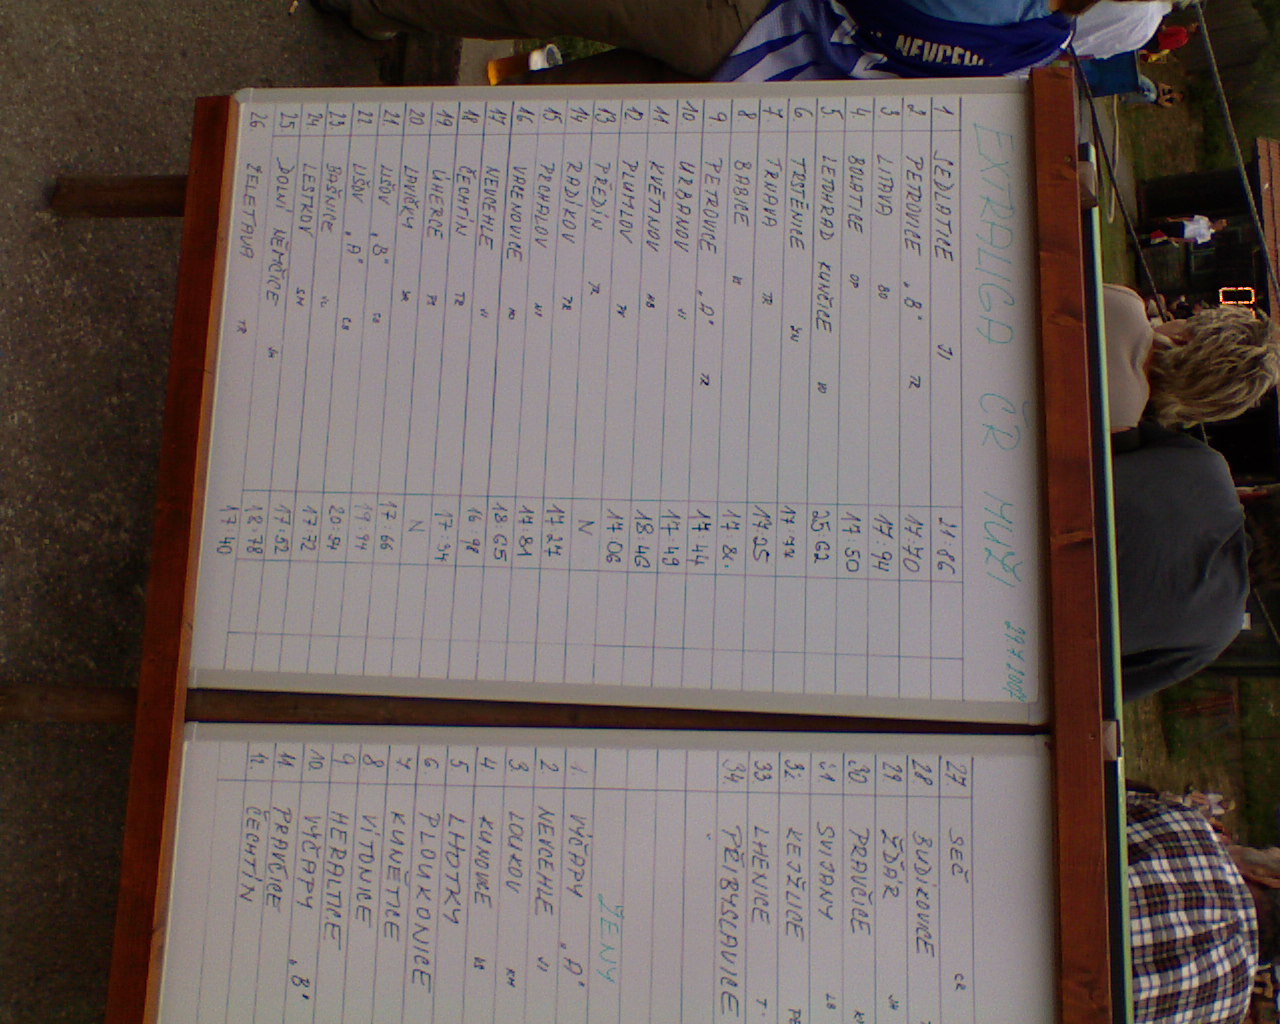 EXTRALIGA ČR MUŽI
1 SEDLATICE JI 21 86
2 PETROVICE "B" TR 17 70
3 LITAVA BO 17 94
4 BOLATICE OP 17:50
5 LETOHRAD KUNČICE 25 62
6 TRSTĚNICE
7 TRNAVA TR 17 25
8 BABICE
9 PETROVICE "A" TR 17 44
10 URBANOV JI 17:49
11 KVĚTNOV HB 18 46
12 PLUMLOV 17 06
13 PŘEDÍN TR N
14 RADÍKOV
15 PROHALOV 17 27
16 VRCHOVICE 17:81
17 NEVCEHLE JI 18:65
18 ČECHTÍN TR 16 98
19 UHERCE 17:34
20 LAVIČKY N
21 LIŠOV "B" 17:66
22 LIŠOV "A" 19:94
23 BOŠNICE 20:54
24 LESTKOV 17 72
25 DOLNÍ NĚMČICE 17:52
26 ŽELETAVA TR 18:78
17 40
27. SEČ CR
28. BUDÍKOVICE
29. ŽĎÁR
30. PRAVČICE
SVIJANY LB
KEJŽLICE PE
33 LHENICE
34. PŘIBYSLAVICE
ŽENY
1. VÝČAPY "A"
2 NEVCEHLE JI
3 LOUKOV KM
4 KUNOVICE
5. LHOTKY
6. PLOUKONICE
7. KUNĚTICE
8 VÍTONICE
9 HERALTICE
10. VÝČAPY "B"
11. PRAVČICE
12. ČECHTÍN